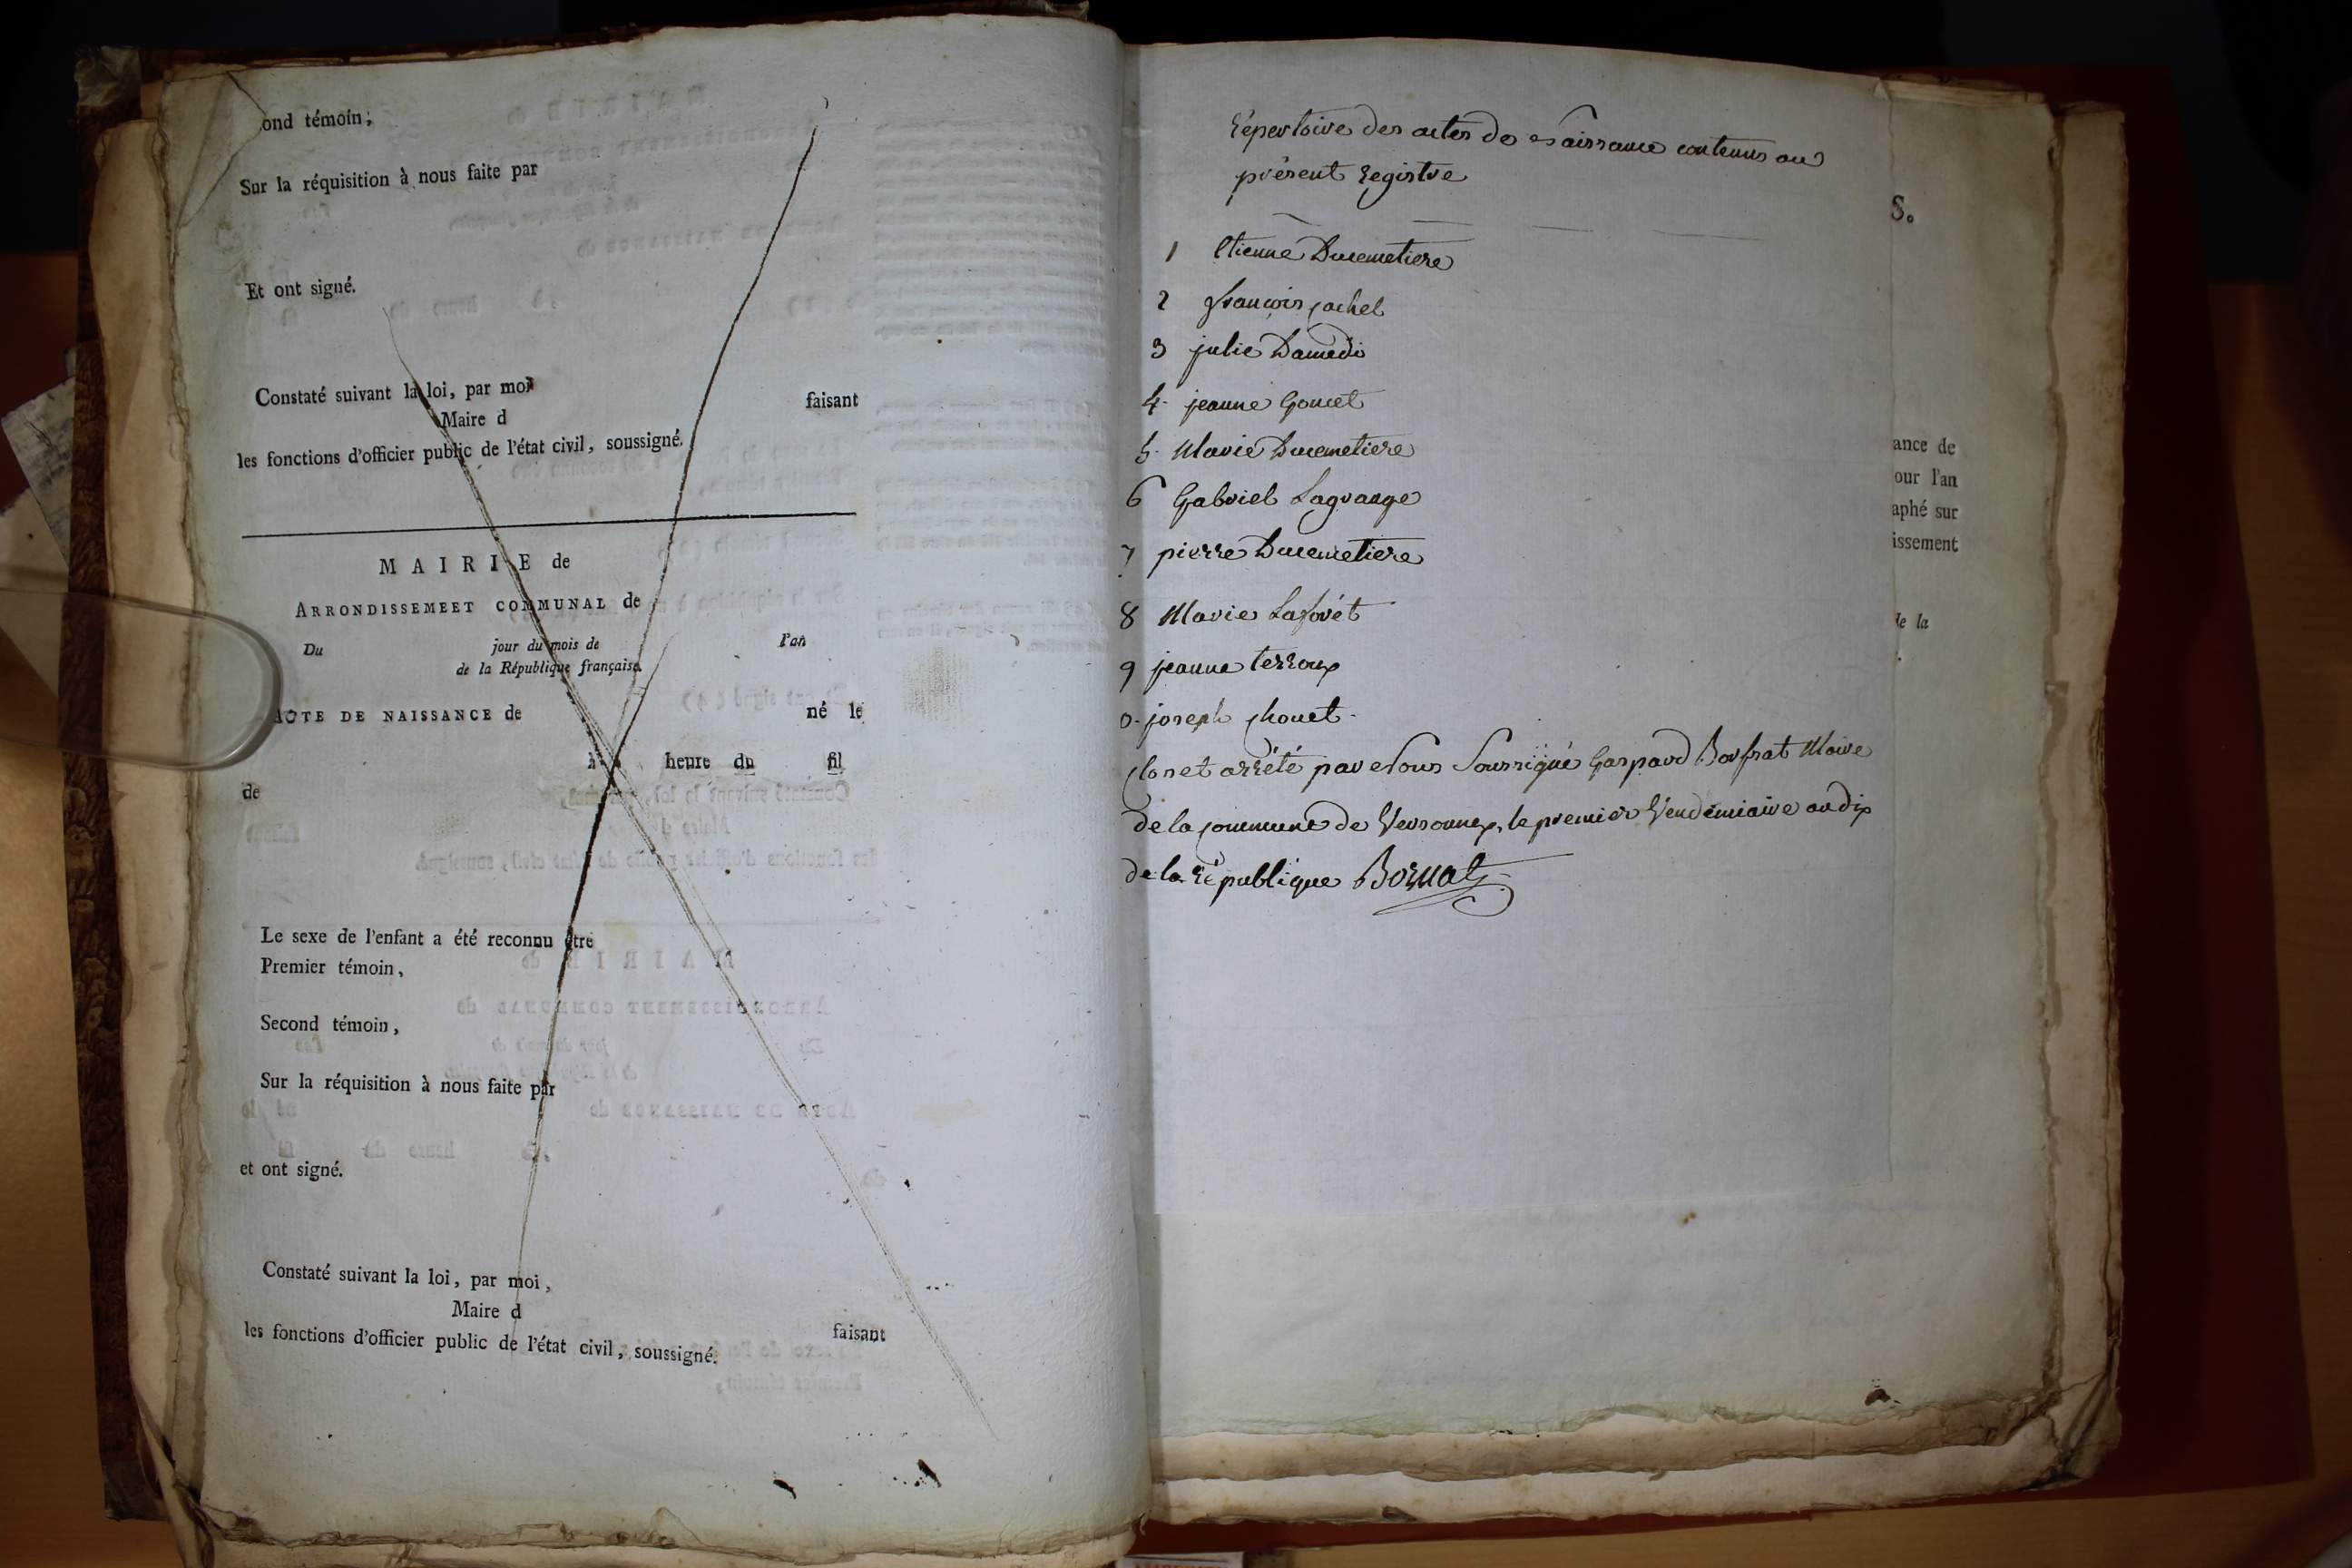 ond témoin;
Sur la réquisition à nous faite par
Et ont signé.
Constaté suivant la loi, par moi
Maire d faisant
les fonctions d'officier public de l'état civil, soussigné.
MAIRIE de
ARRONDISSEMEET COMMUNAL de
Du jour du mois de l'an
de la République française.
ACTE DE NAISSANCE de né le
à heure du fil
de
Le sexe de l'enfant a été reconnu être
Premier témoin,
Second témoin,
Sur la réquisition à nous faite par
et ont signé.
Constaté suivant la loi, par moi,
Maire d faisant
les fonctions d'officier public de l'état civil, soussigné.
Répertoire des actes de Naissance contenus au
présent Registre
1 Etienne Ducemetiere
2 françois cachet
3 julie Damedi
4. jeanne Goncet
5. Marie Ducemetiere
6 Gabriel Lagrange
7 pierre Ducemetiere
8 Marie Laforêt
9 jeanne terroux
0. joseph chouet.
clos et arrêté par Nous Soussigné Gaspard Maire
de la commune de Versonnex, le premier Vendémiaire an dix
de la République
S.
ance de
our l'an
aphé sur
issement
de la